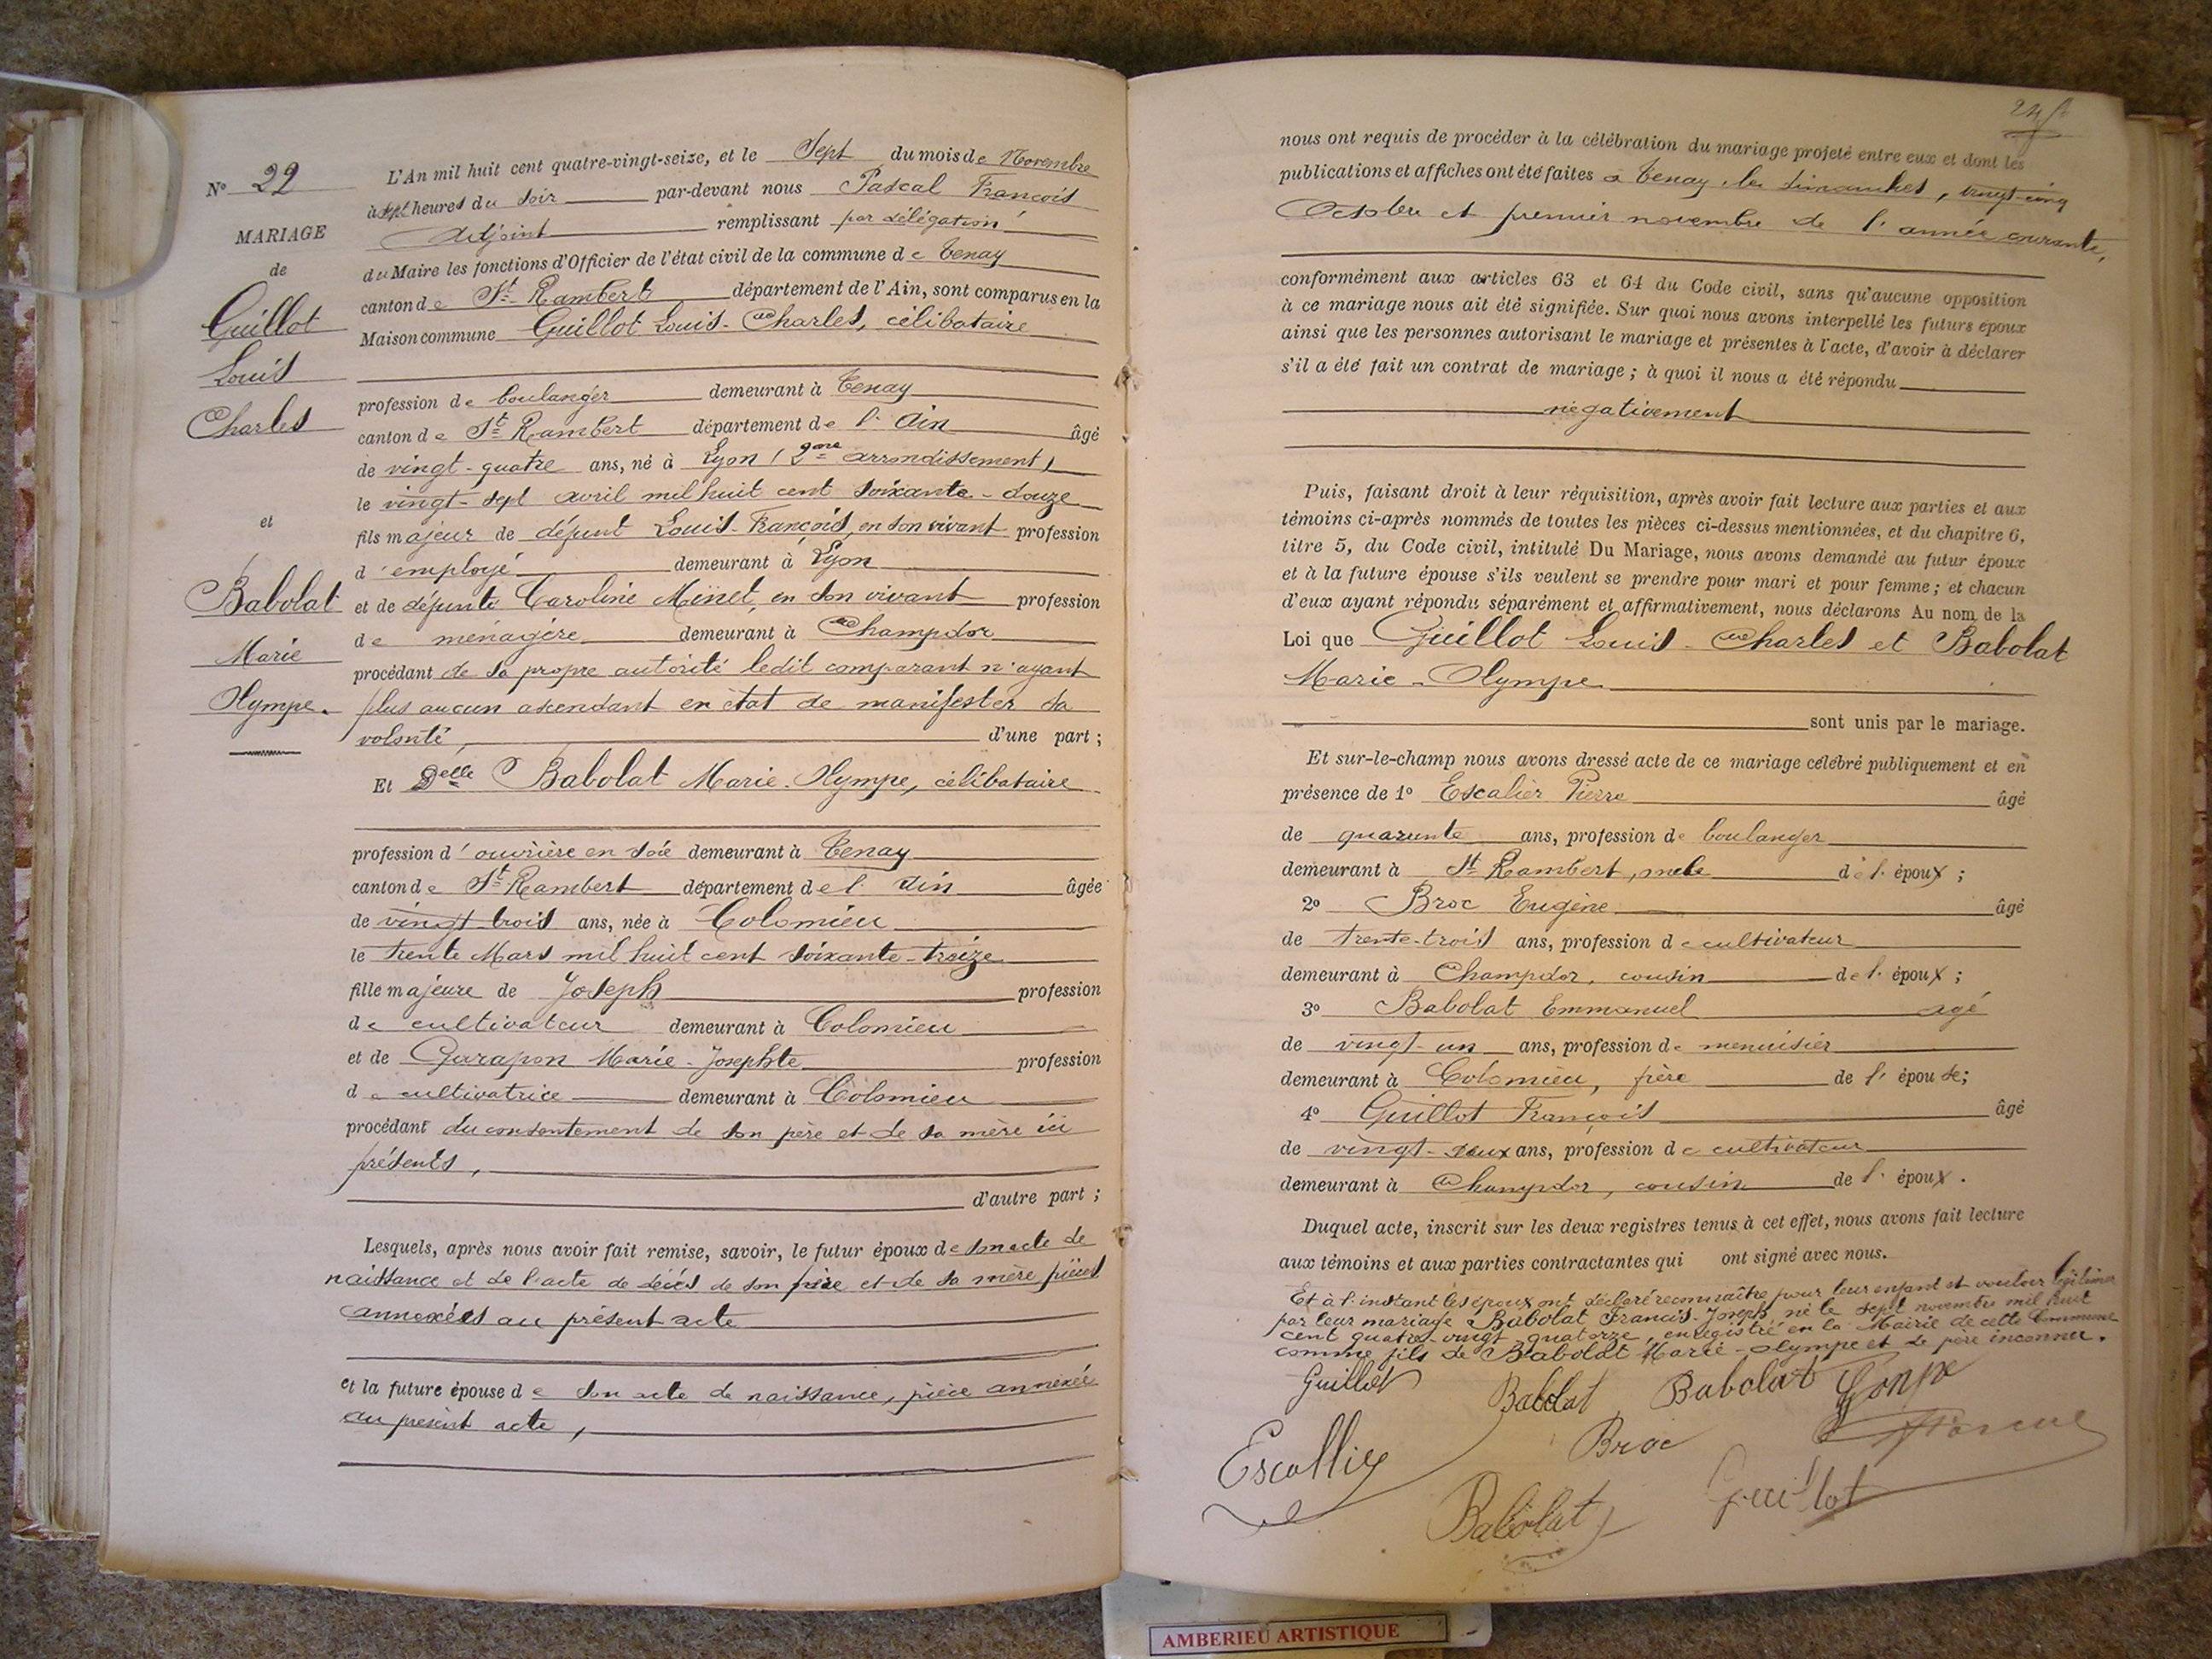 N° 22
MARIAGE
de
Guillot
Louis
Charles
et
Babolat
Marie
Olympe.
L'An mil huit cent quatre-vingt-seize, et le Sept du mois de Novembre
à sept heures du soir par-devant nous Pascal François
adjoint remplissant par délégation
du Maire les fonctions d'Officier de l'état civil de la commune de Tenay
canton de St Rambert département de l'Ain, sont comparus en la
Maison commune Guillot Louis-Charles, célibataire
profession de boulanger demeurant à Tenay
canton de St Rambert département de l'Ain âgé
de vingt-quatre ans, né à Lyon (2me arrondissement)
le vingt-sept avril mil huit cent soixante-douze
fils majeur de défunt Louis-François, en son vivant profession
d'employé demeurant à Lyon
et de défunte Caroline Minet, en son vivant profession
de ménagère demeurant à Champdor
procédant de sa propre autorité ledit comparant n'ayant
plus aucun ascendant en état de manifester sa
volonté, d'une part ;
Et Delle Babolat Marie-Olympe, célibataire
profession d'ouvrière en soie demeurant à Tenay
canton de St Rambert département de l'Ain âgée
de vingt trois ans, née à Colomieu
le trente Mars mil huit cent soixante-treize
fille majeure de Joseph profession
de cultivateur demeurant à Colomieu
et de Garapon Marie-Josephte profession
de cultivatrice demeurant à Colomieu
procédant du consentement de son père et de sa mère ici
présents,
d'autre part ;
Lesquels, après nous avoir fait remise, savoir, le futur époux de son acte de
naissance et de l'acte de décès de son père et de sa mère pièces
annexées au présent acte
et la future épouse de son acte de naissance, pièce annexée
au présent acte,
nous ont requis de procéder à la célébration du mariage projeté entre eux et dont les
publications et affiches ont été faites à Tenay, les dimanches, vingt-cinq
Octobre et premier novembre de l'année courante,
conformément aux articles 63 et 64 du Code civil, sans qu'aucune opposition
à ce mariage nous ait été signifiée. Sur quoi nous avons interpellé les futurs époux
ainsi que les personnes autorisant le mariage et présentes à l'acte, d'avoir à déclarer
s'il a été fait un contrat de mariage ; à quoi il nous a été répondu
négativement
Puis, faisant droit à leur réquisition, après avoir fait lecture aux parties et aux
témoins ci-après nommés de toutes les pièces ci-dessus mentionnées, et du chapitre 6,
titre 5, du Code civil, intitulé Du Mariage, nous avons demandé au futur époux
et à la future épouse s'ils veulent se prendre pour mari et pour femme ; et chacun
d'eux ayant répondu séparément et affirmativement, nous déclarons Au nom de la
Loi que Guillot Louis-Charles et Babolat
Marie-Olympe
sont unis par le mariage.
Et sur-le-champ nous avons dressé acte de ce mariage célébré publiquement et en
présence de 1° Escalier Pierre âgé
de quarante ans, profession de boulanger
demeurant à St Rambert, oncle de l'époux ;
2° Broc Eugène âgé
de trente-trois ans, profession de cultivateur
demeurant à Champdor, cousin de l'époux ;
3° Babolat Emmanuel agé
de vingt-un ans, profession de menuisier
demeurant à Colomieu, frère de l'épouse;
4° Guillot François âgé
de vingt-deux ans, profession de cultivateur
demeurant à Champdor, cousin de l'époux.
Duquel acte, inscrit sur les deux registres tenus à cet effet, nous avons fait lecture
aux témoins et aux parties contractantes qui ont signé avec nous.
Et à l'instant les époux ont déclaré reconnaître pour leur enfant et vouloir légitimer
par leur mariage Babolat Francis-Joseph, né le sept novembre mil huit
cent quatre-vingt quatorze, enregistré en la Mairie de cette Commune
comme fils de Babolat Marie-Olympe et de père inconnu.
Guillot Babolat Babolat
Escallier Broc
Babolat Guillot
AMBERIEU ARTISTIQUE